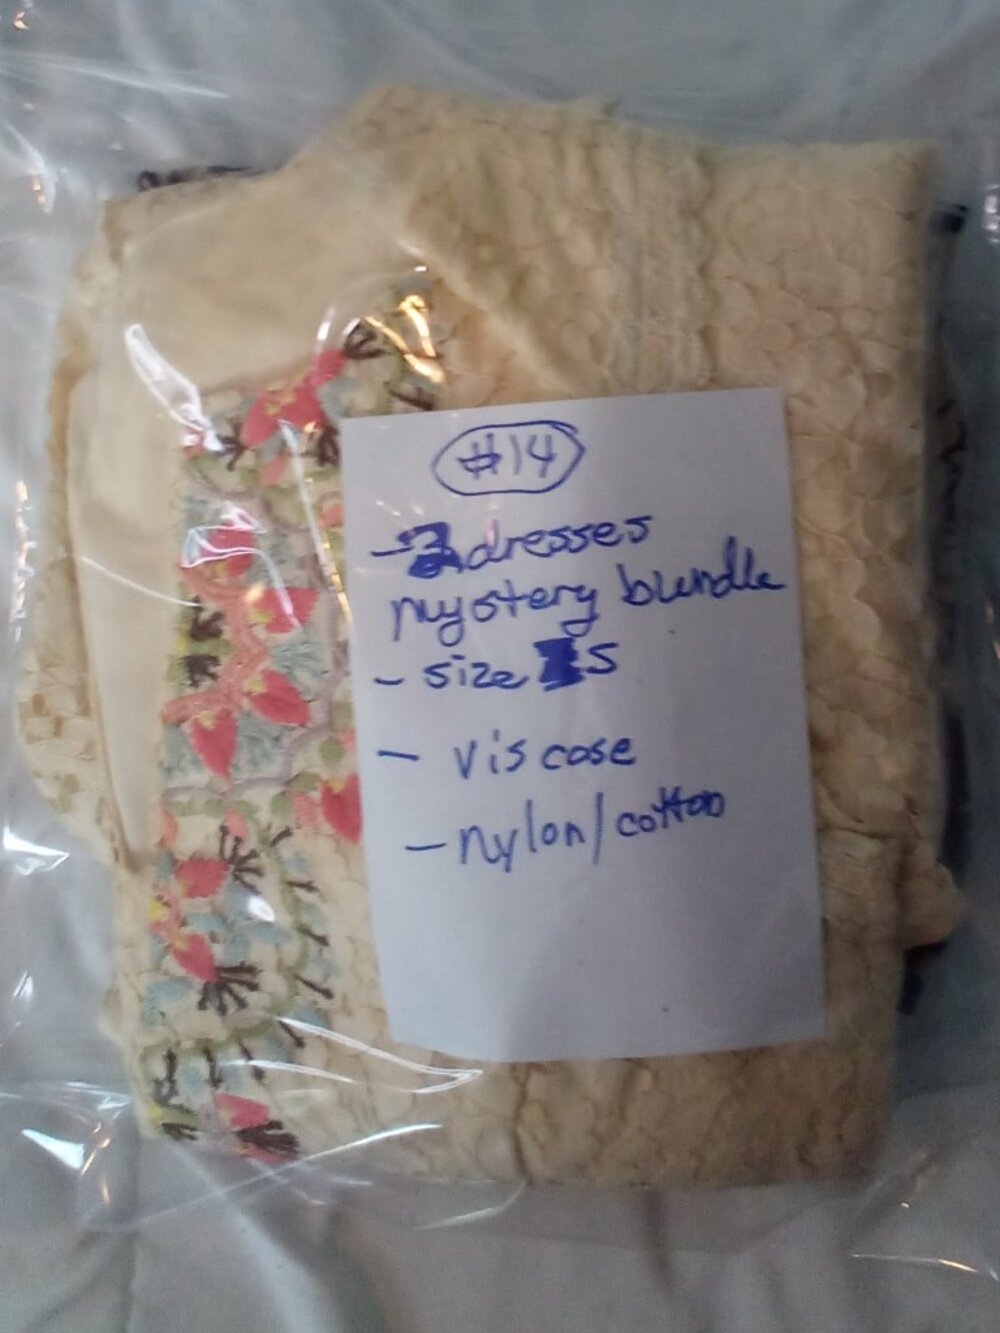 #14
- 2 dresses
mystery bundle
- size S
- viscose
- nylon/cotton